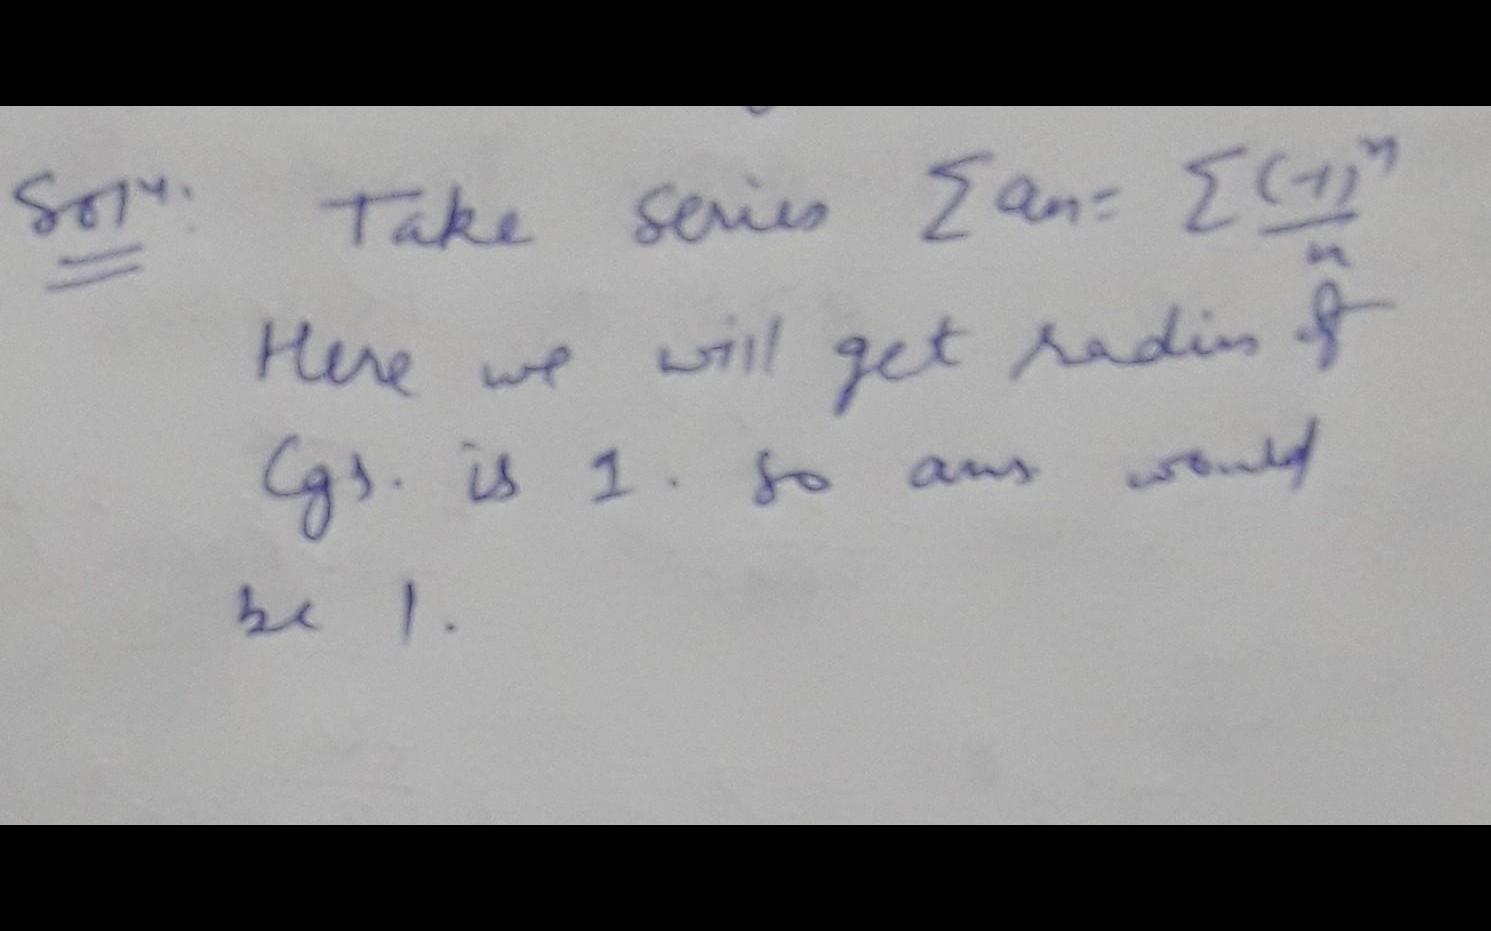 Solⁿ. Take series ∑ aₙ = ∑ (-1)ⁿ/n
Here we will get radius of
Cgs. is 1. So ans would
be 1.